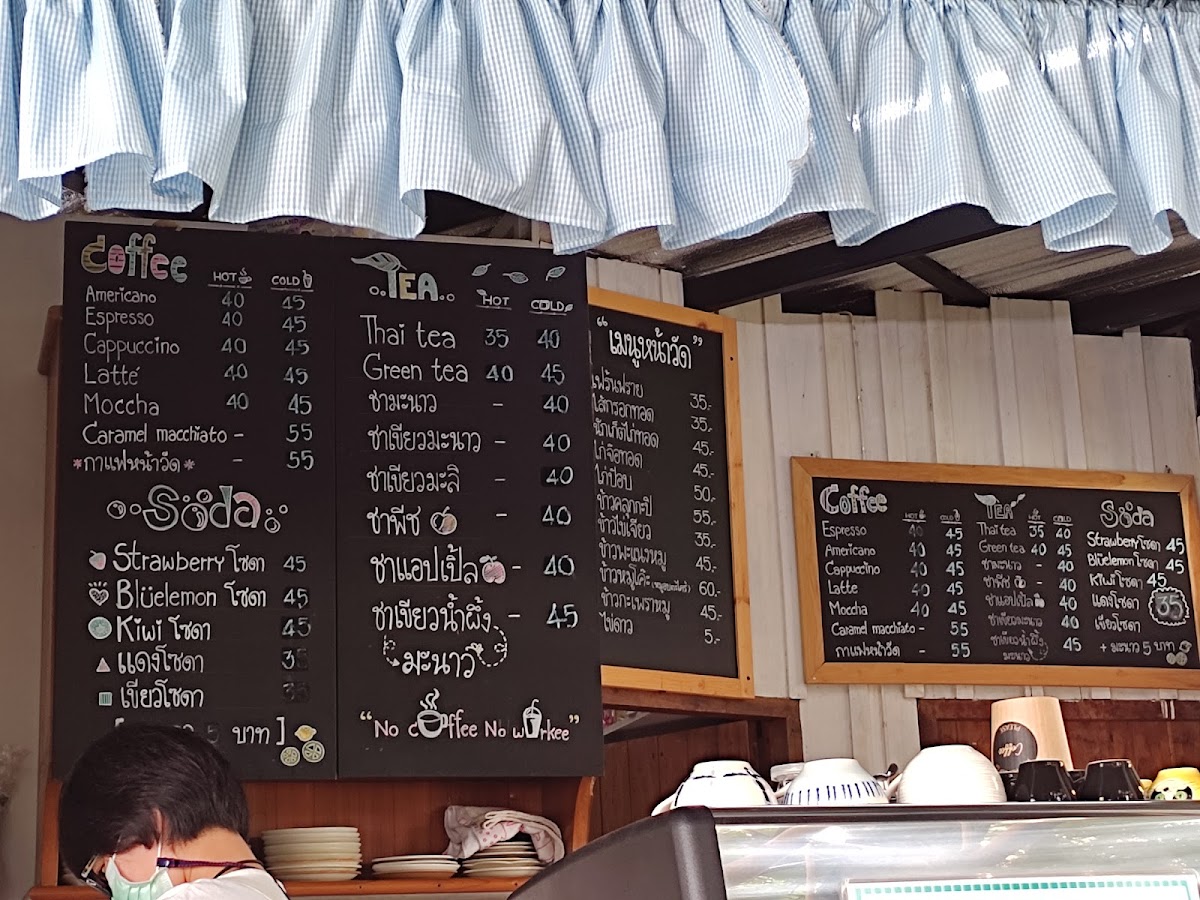 Coffee HOT COLD
Americano 40 45
Espresso 40 45
Cappuccino 40 45
Latte 40 45
Moccha 40 45
Caramel macchiato - 55
*กาแฟหน้าวัด* - 55
Soda
Strawberry โซดา 45
Blüelemon โซดา 45
Kiwi โซดา 45
แดงโซดา 35
เขียวโซดา 35
5 บาท ]
TEA HOT COLD
Thai tea 35 40
Green tea 40 45
ชามะนาว - 40
ชาเขียวมะนาว - 40
ชาเขียวมะลิ - 40
ชาพีช - 40
ชาแอปเปิ้ล - 40
ชาเขียวน้ำผึ้ง - 45
มะนาว
"No coffee No workee"
"เมนูหน้าวัด"
เฟร้นฟราย 35.-
ไส้กรอกทอด 35.-
นักเก็ตไก่ทอด 45.-
ไก่จ๊อทอด 45.-
ไก่ป๊อบ 50.-
ข้าวคลุกกะปิ 55.-
ข้าวไข่เจียว 35.-
ข้าวพะแนงหมู 45.-
ข้าวหมูโค๊ะ 60.-
ข้าวกะเพราหมู 45.-
ไข่ดาว 5.-
Coffee HOT COLD
Espresso 40 45
Americano 40 45
Cappucino 40 45
Latte 40 45
Moccha 40 45
Caramel macchiato - 55
กาแฟหน้าวัด - 55
TEA HOT COLD
Thai tea 35 40
Green tea 40 45
ชามะนาว - 40
ชาพีช - 40
ชาแอปเปิ้ล - 40
ชาเขียวมะนาว - 40
ชาเขียวน้ำผึ้ง 45
มะนาว
Soda
Strawberry โซดา 45
Blüelemon โซดา 45
Kiwi โซดา 45
แดงโซดา 35
เขียวโซดา
+ มะนาว 5 บาท
Coffee